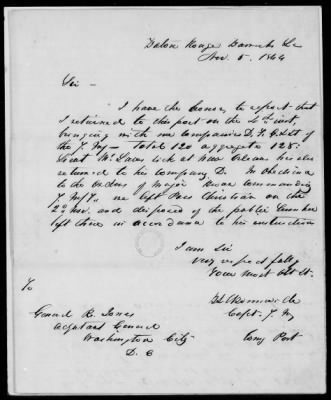 Baton Rouge Barracks La
Nov. 5. 1844
Sir -
I have the honor to report that
I returned to this post on the 4th inst,
bringing with me Companies D. F. G & I of
the 7. Inf - Total 120 aggregate 128:
Lieut sick at New Orleans has also
returned to his company D. In obedience
to the orders of Major commanding
7. Inf, we left Pass Christian on the
2d inst. and disposed of the public
left there in accordance to his instructions
I am Sir
very respectfully
Your most Obt St.
Capt. 7. Inf
Comg Post
To
General R. Jones
Adjutant General
Washington City
D. C